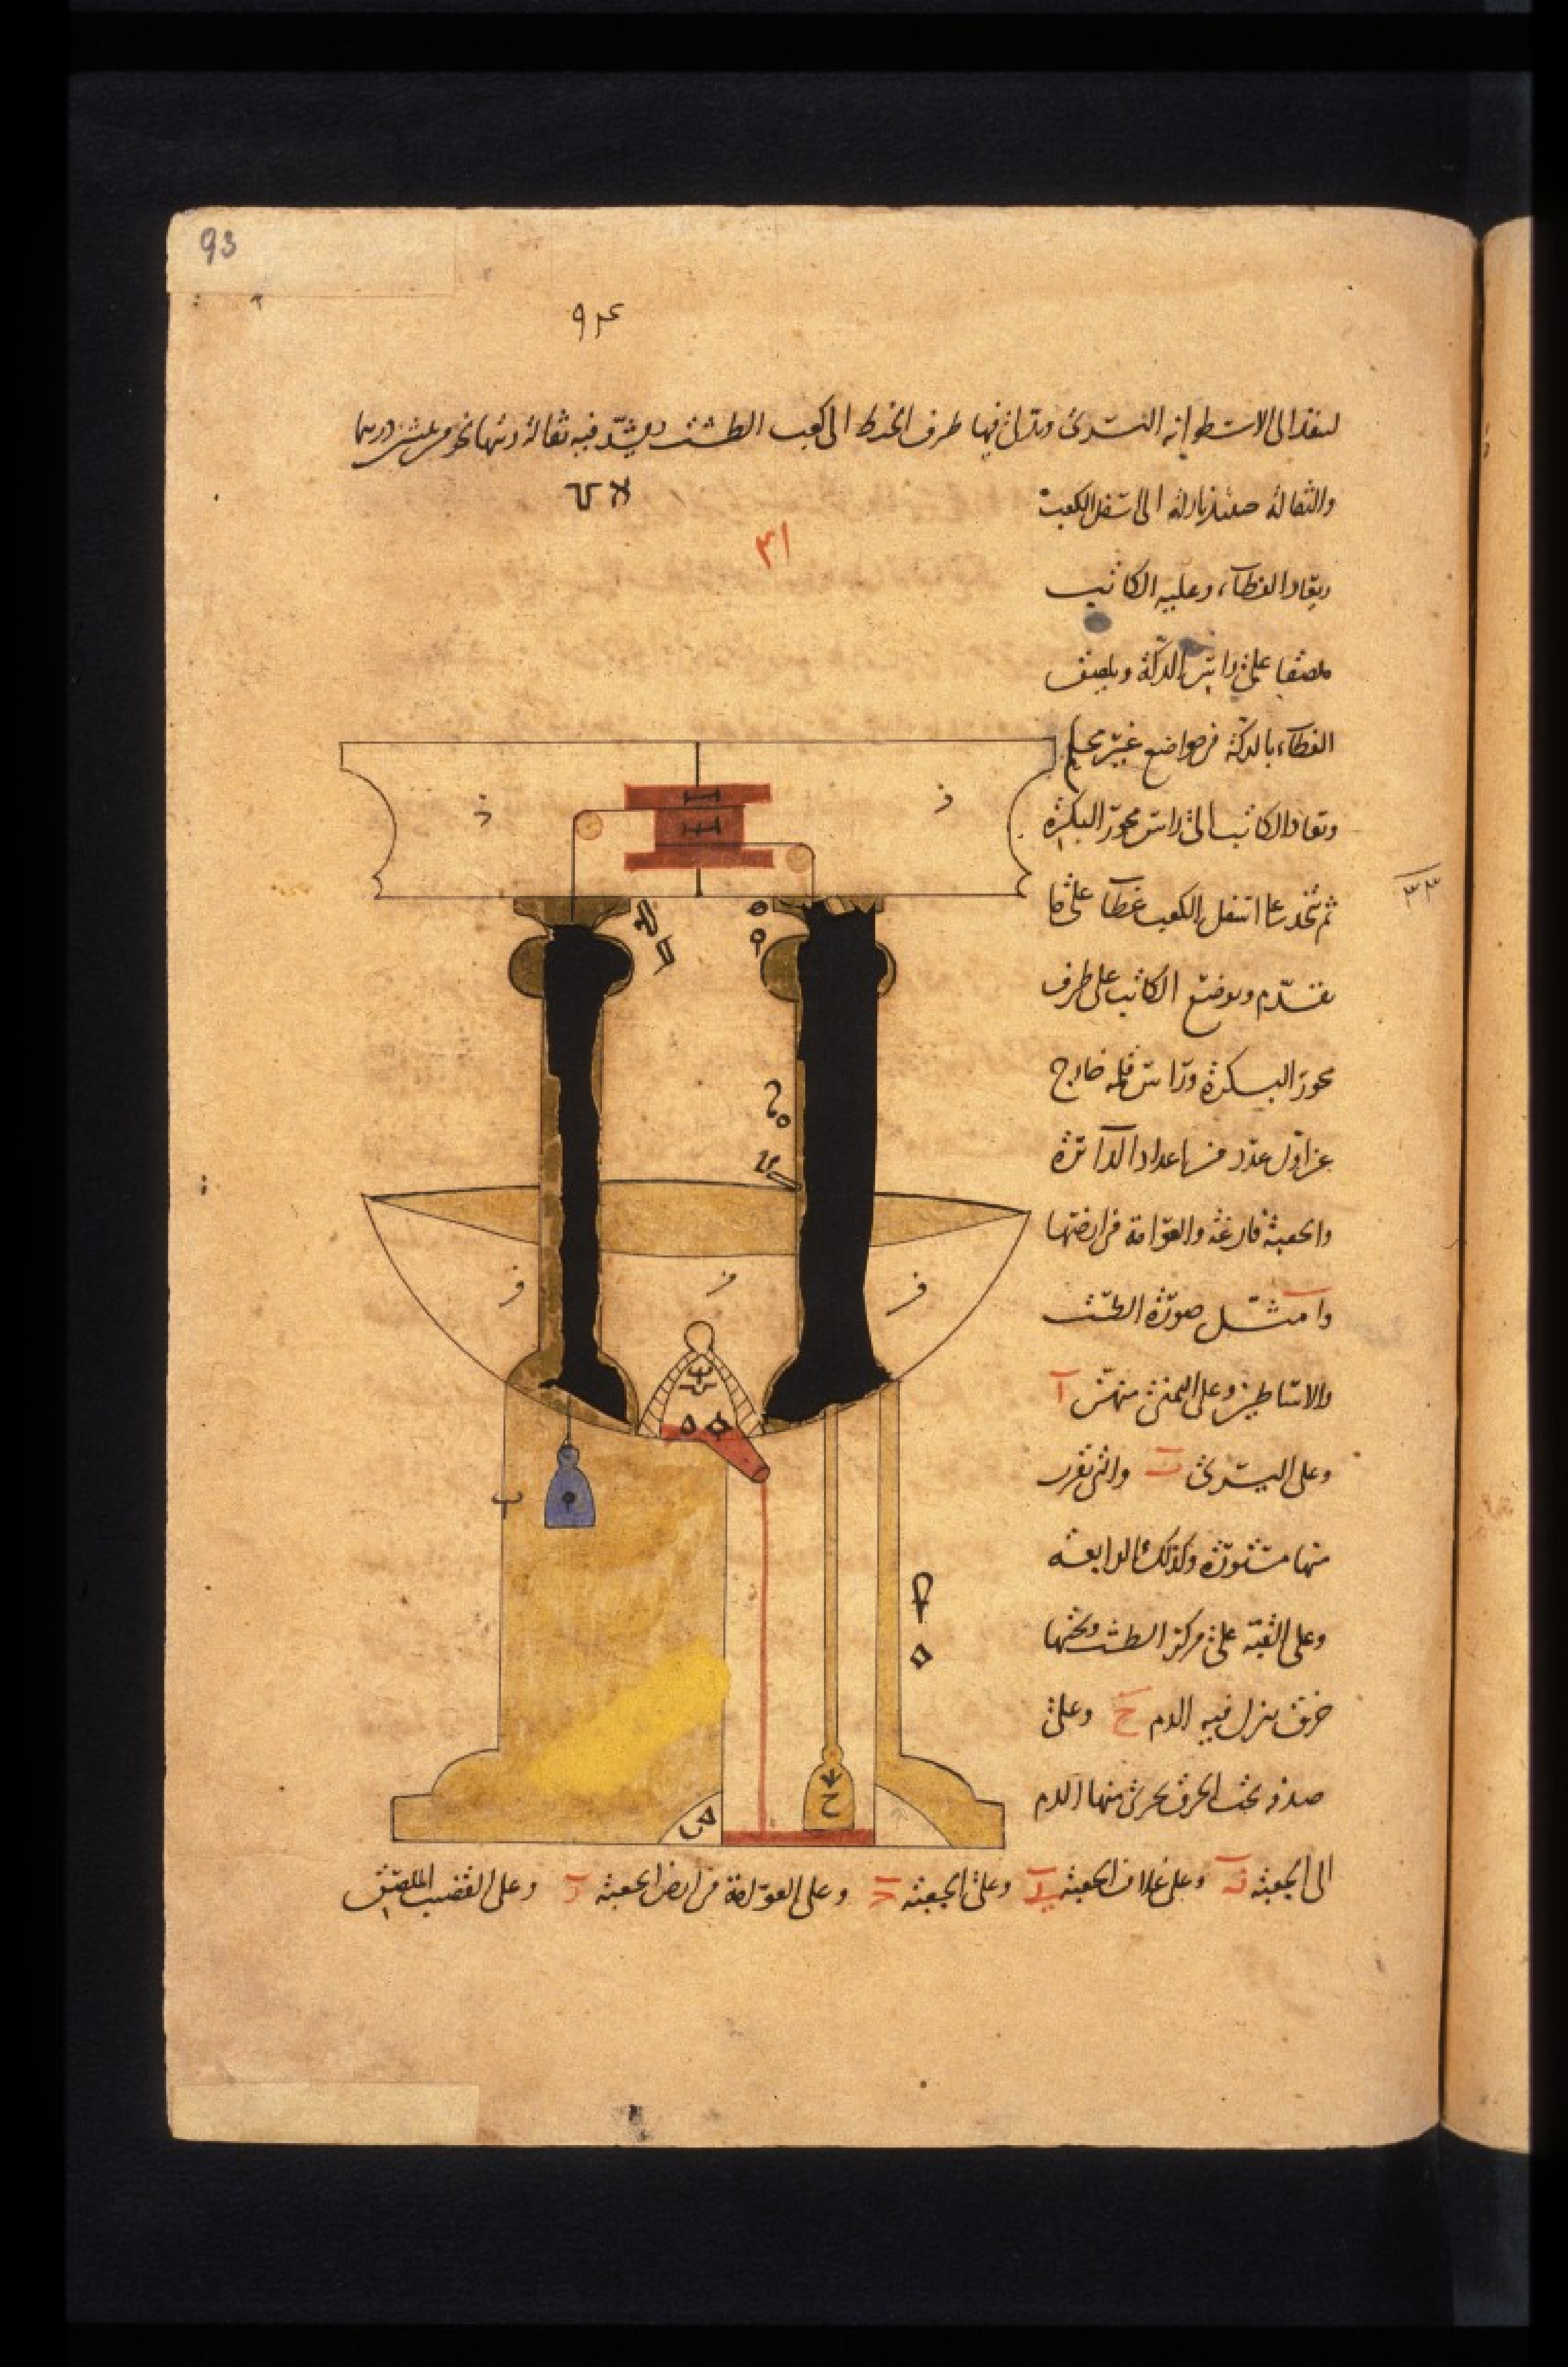 93
٩٤
لينفذ الى الاسطوانه اليسرى وينزل فيها طرف الخيط الى كعب الطشت ويشد فيه ثقالة وزنها نحو من عشرين درهما
والثقالة حينئذ نازلة الى اسفل الكعب
٣١
ويعاد الغطاء وعليه الكاتب
ملصقا على راس الدكة ويلصق
الغطاء بالدكة في مواضع غير محلم
ويعاد الكاتب الى راس محور البكرة
ثم يتخذ على اسفل الكعب غطاء على ما
٣٣
تقدم ويوضع الكاتب على طرف
محور البكرة وراس قلمه خارج
عن اول عدد من اعداد الدائرة
والجعبة فارغة والعوامة في ارضها
وامثل صورة الطشت
والاساطين وعلى اليمنى منهن آ
وعلى اليسرى ب
منها مستورة وكذلك الرابعة
وعلى القبة على مركز الطشت وتحتها
خرق ينزل فيه الدم ح وعلى
تحت الخرق يجرى منها الدم
الى الجعبة وعلى غلاف الجعبة وعلى الجعبة وعلى العوامة في ارض الجعبة وعلى القضيب الملصق